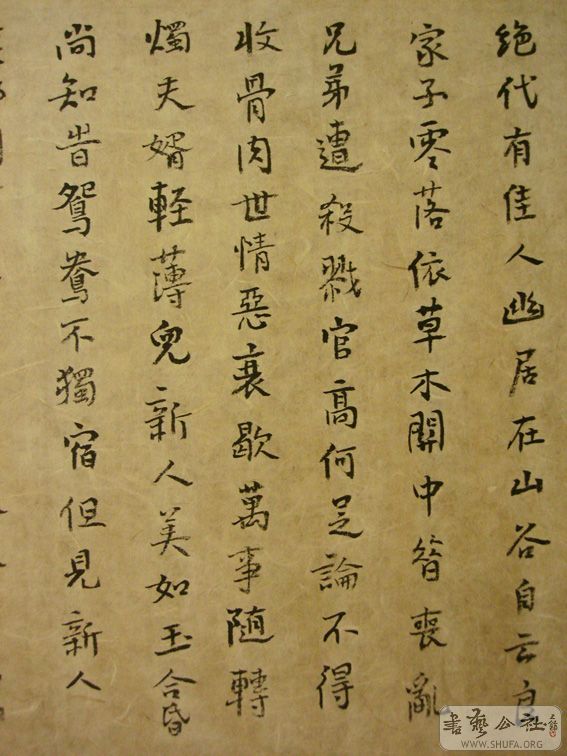 絶代有佳人幽居在山谷自云良
家子零落依草木關中昔喪亂
兄弟遭殺戮官高何足論不得
收骨肉世情惡衰歇萬事随轉
燭夫婿軽薄兒新人美如玉合昏
尚知旹鴛鴦不獨宿但見新人
書藝公社
WWW.SHUFA.ORG